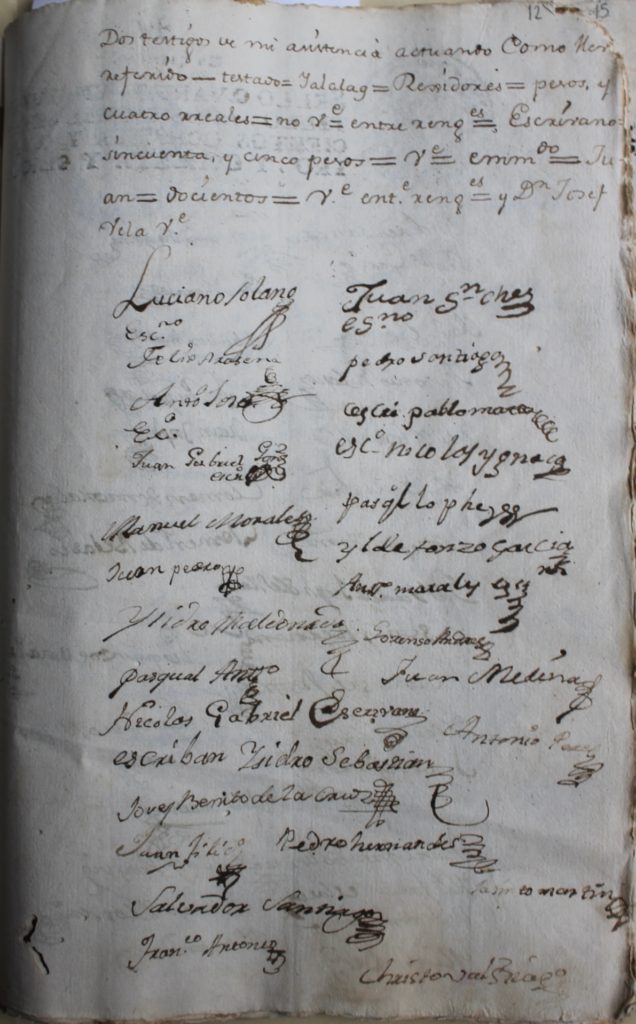 12 15
Dos testigos de mi asistencia actuando Como
referido — testado = Yalalag = Rexidores = pesos, y
cuatro rreales = no vᵉ = entre rengᵉˢ = Escrivano =
sincuenta, y cinco pesos = vᵉ = emmᵈᵒ = Ju
an = docientos = v.ᵉ ent.ᵉ rengᵉˢ = y Dⁿ Josef
Vela vᵉ.
Luciano Solano Juan Sⁿches
Esc.ⁿᵒ esⁿᵒ
pedro santiago
Antᵒ
Esᵒ. escri. pablo
Juan Gabriel escᵒ nicolas ygnacio
Manuel Morales pasql lophez
Juan pedro yldefonzo garcia
Antᵒ. moraly
Ysidro Maldonado Lorenso
pasqual Antᵒ Juan Medina
Nicolas Gabriel Escrivano
Antonio Perez
escriban Ysidro Sebastian
Benito de la Cruz
Juan Pedro hernandes
martin
Salvador Santiago
Franᶜᵒ Antonio
Christoval